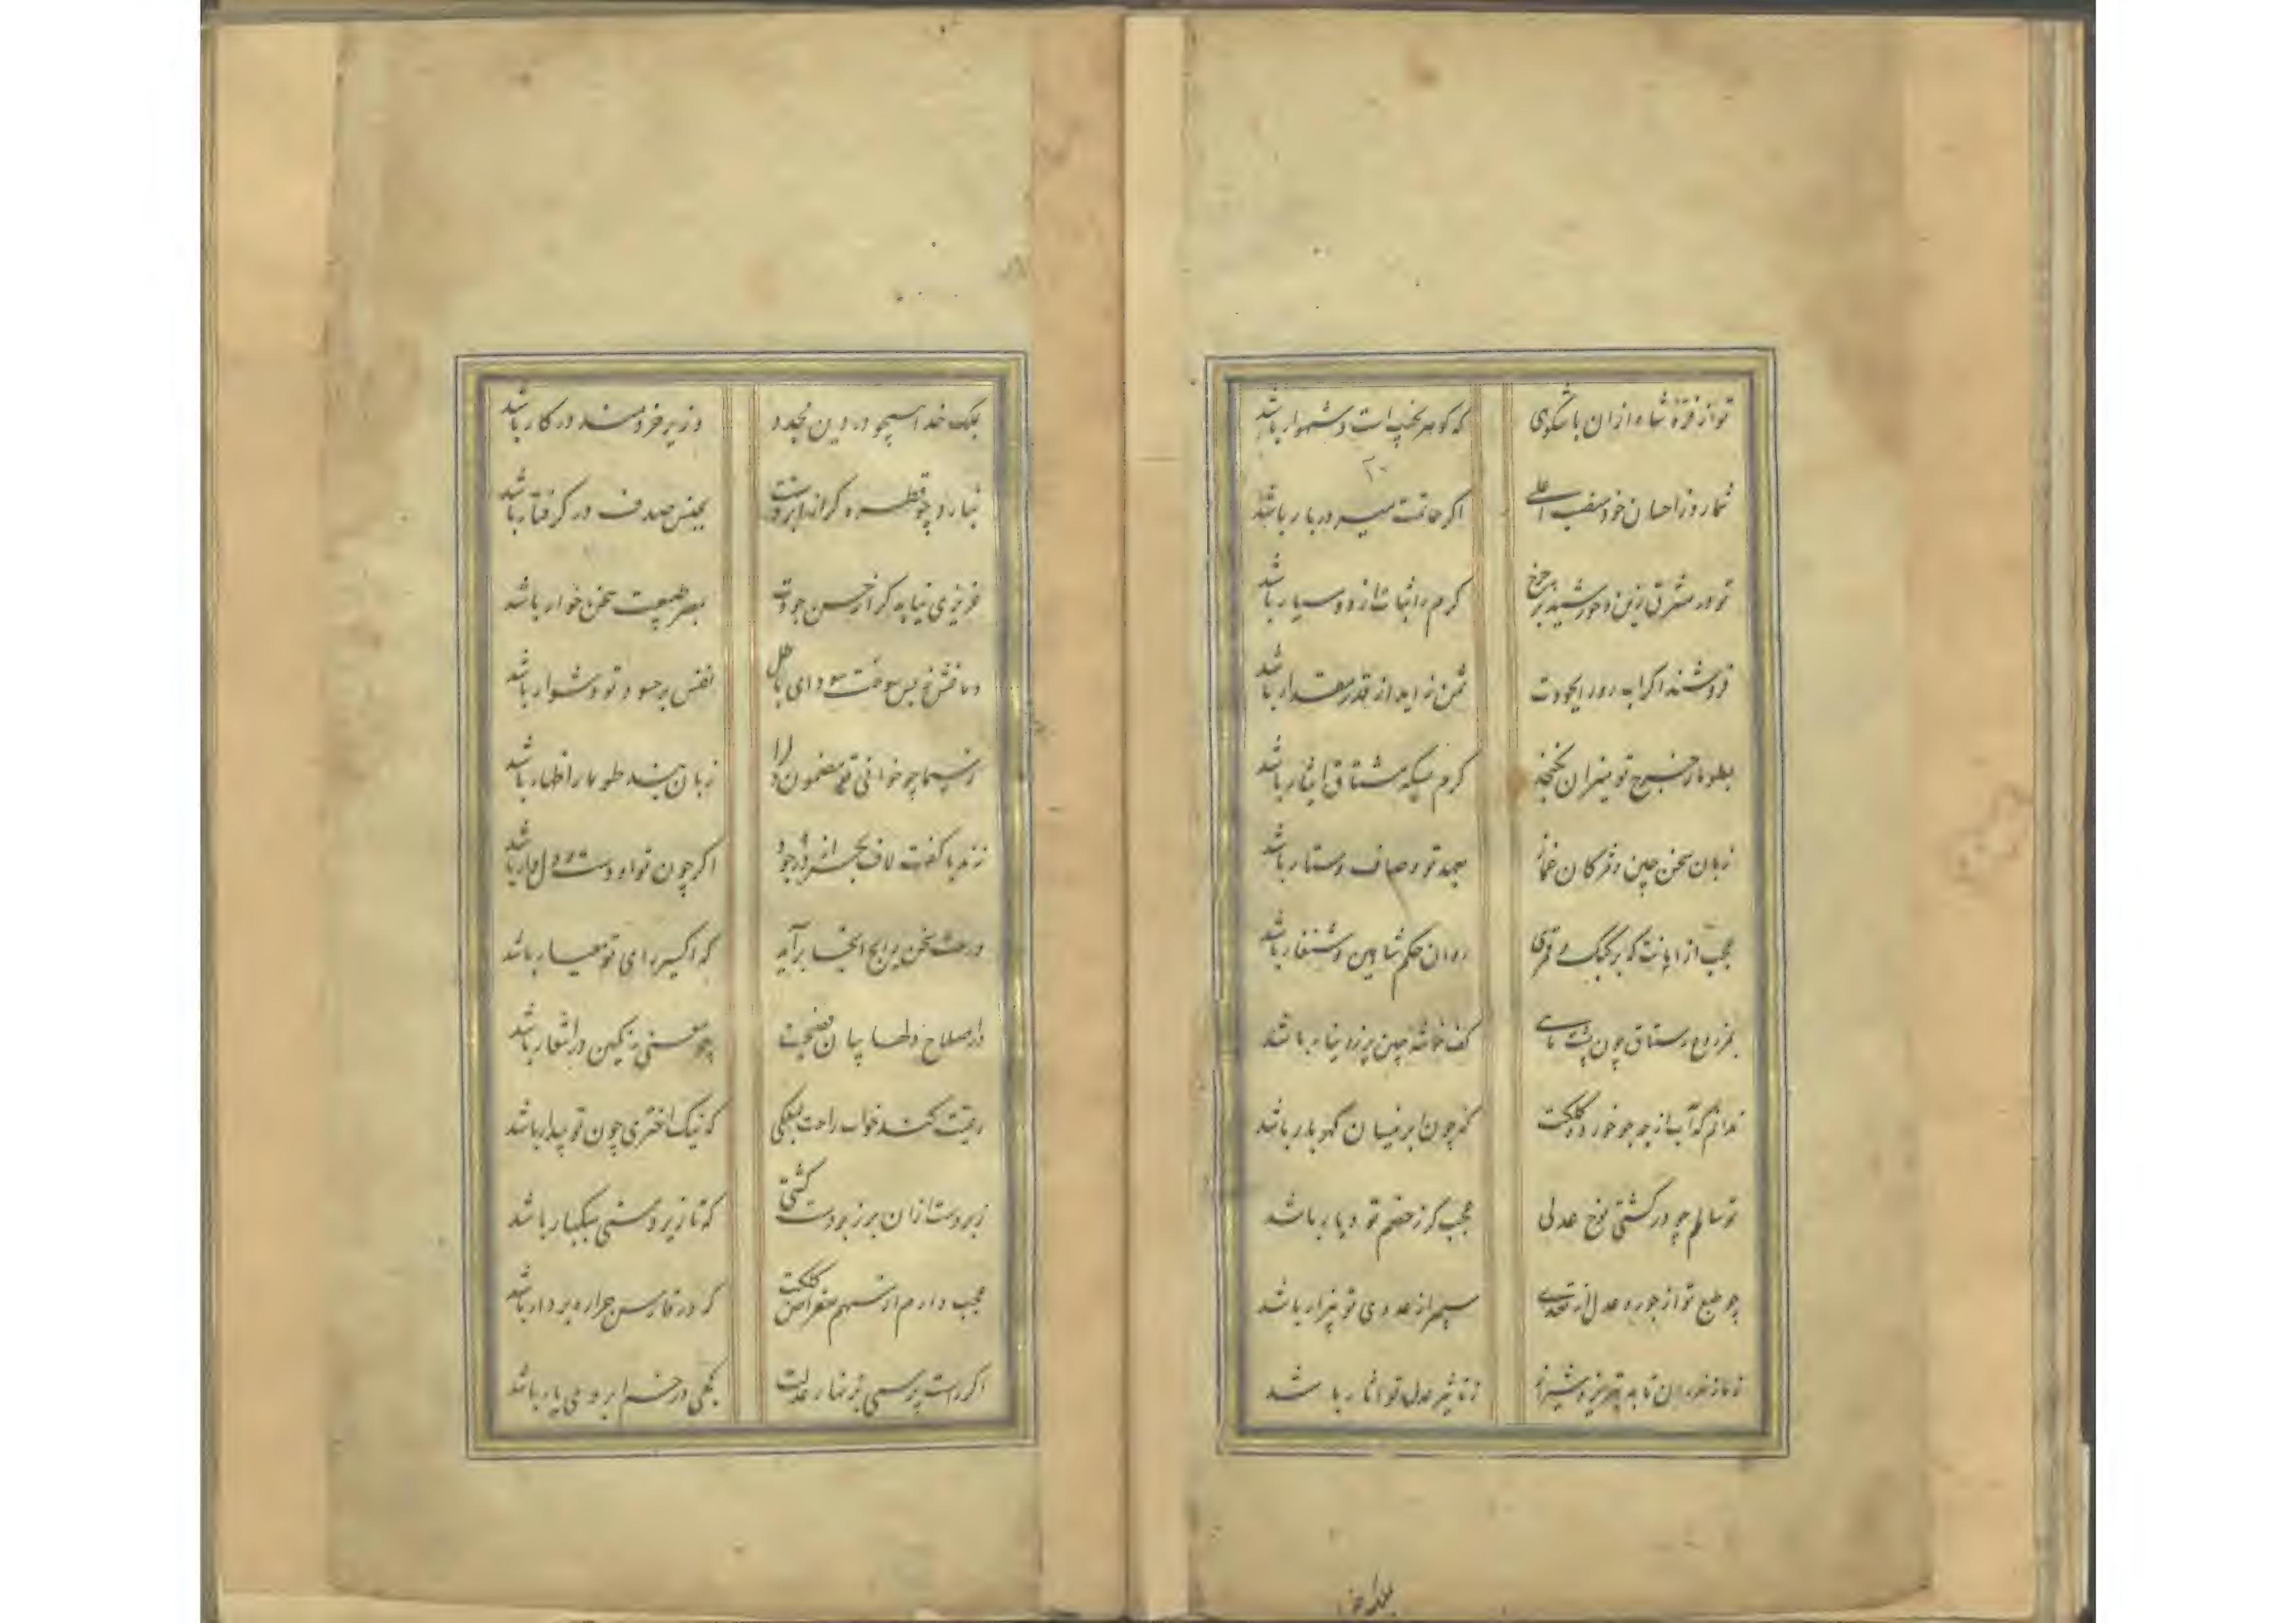 تو از قرهٔ شاه ازان باشکوهی که کوهر نجیب است و شهوار باشد
شمارد ز احسان خود منصب اعلی اگر حاتمت میر دربار باشد
تو در مشرق زین و خورشید بر چرخ کرم را ثبات از دو سیار باشد
فروشند اگر ثمن زاید از قدر مقدار باشد
بطومار خرج تو میزان نگنجد کرم بسکه مشتاق ایثار باشد
زبان سخن چین و مژگان غماز بعهد تو وصاف و ستار باشد
عجب از امانت که بر کبک و قمری روان حکم شاهین و شنقار باشد
کف خوشه چین پر ز دینار باشد
ندانم که آب از چه جو خورد کلکت که چون ابر نیسان گهربار باشد
تو سالم چو در کشتی نوح عدلی عجب گر ز خصم تو دیار باشد
چو طبع تو از جور و عدل از تعدی سپهر از عدوی تو بیزار باشد
تا به تبریز و شیراز ز تاثیر عدل تو آثار باشد
بملک خدا
بملک خدا هیچو در دین نجدد وزیر خردمند در کار باشد
نبارد چو قطره گر از ابر دستت بحبس صدف در گرفتار باشد
عزیزی نیابد گر از حسن جودت بمصر طبیعت سخن خوار باشد
دماغش ز بس سوخت سودای باطل نفس بر حسود تو دشوار باشد
ز سیما چو خوانی تو مضمون دل را زبان بند طومار اظهار باشد
زند با کفت لاف بخشش ز جود اگر چون تواش دست و دل یار باشد
که اکسیر رای تو معیار باشد
در اصلاح دلها بیان فصیحت چو معنی رنگین در اشعار باشد
رعیت کند خواب راحت بملکی که نیک اختری چون تو بیدار باشد
زبردست ازان بر زبردست گشتی که تا زیردستی سبکبار باشد
عجب دارم از سهم مقراض کلکت که در فارس جراره پردار باشد
اگر راست پرسی بزنهار عدلت کجی در خم ابروی یار باشد